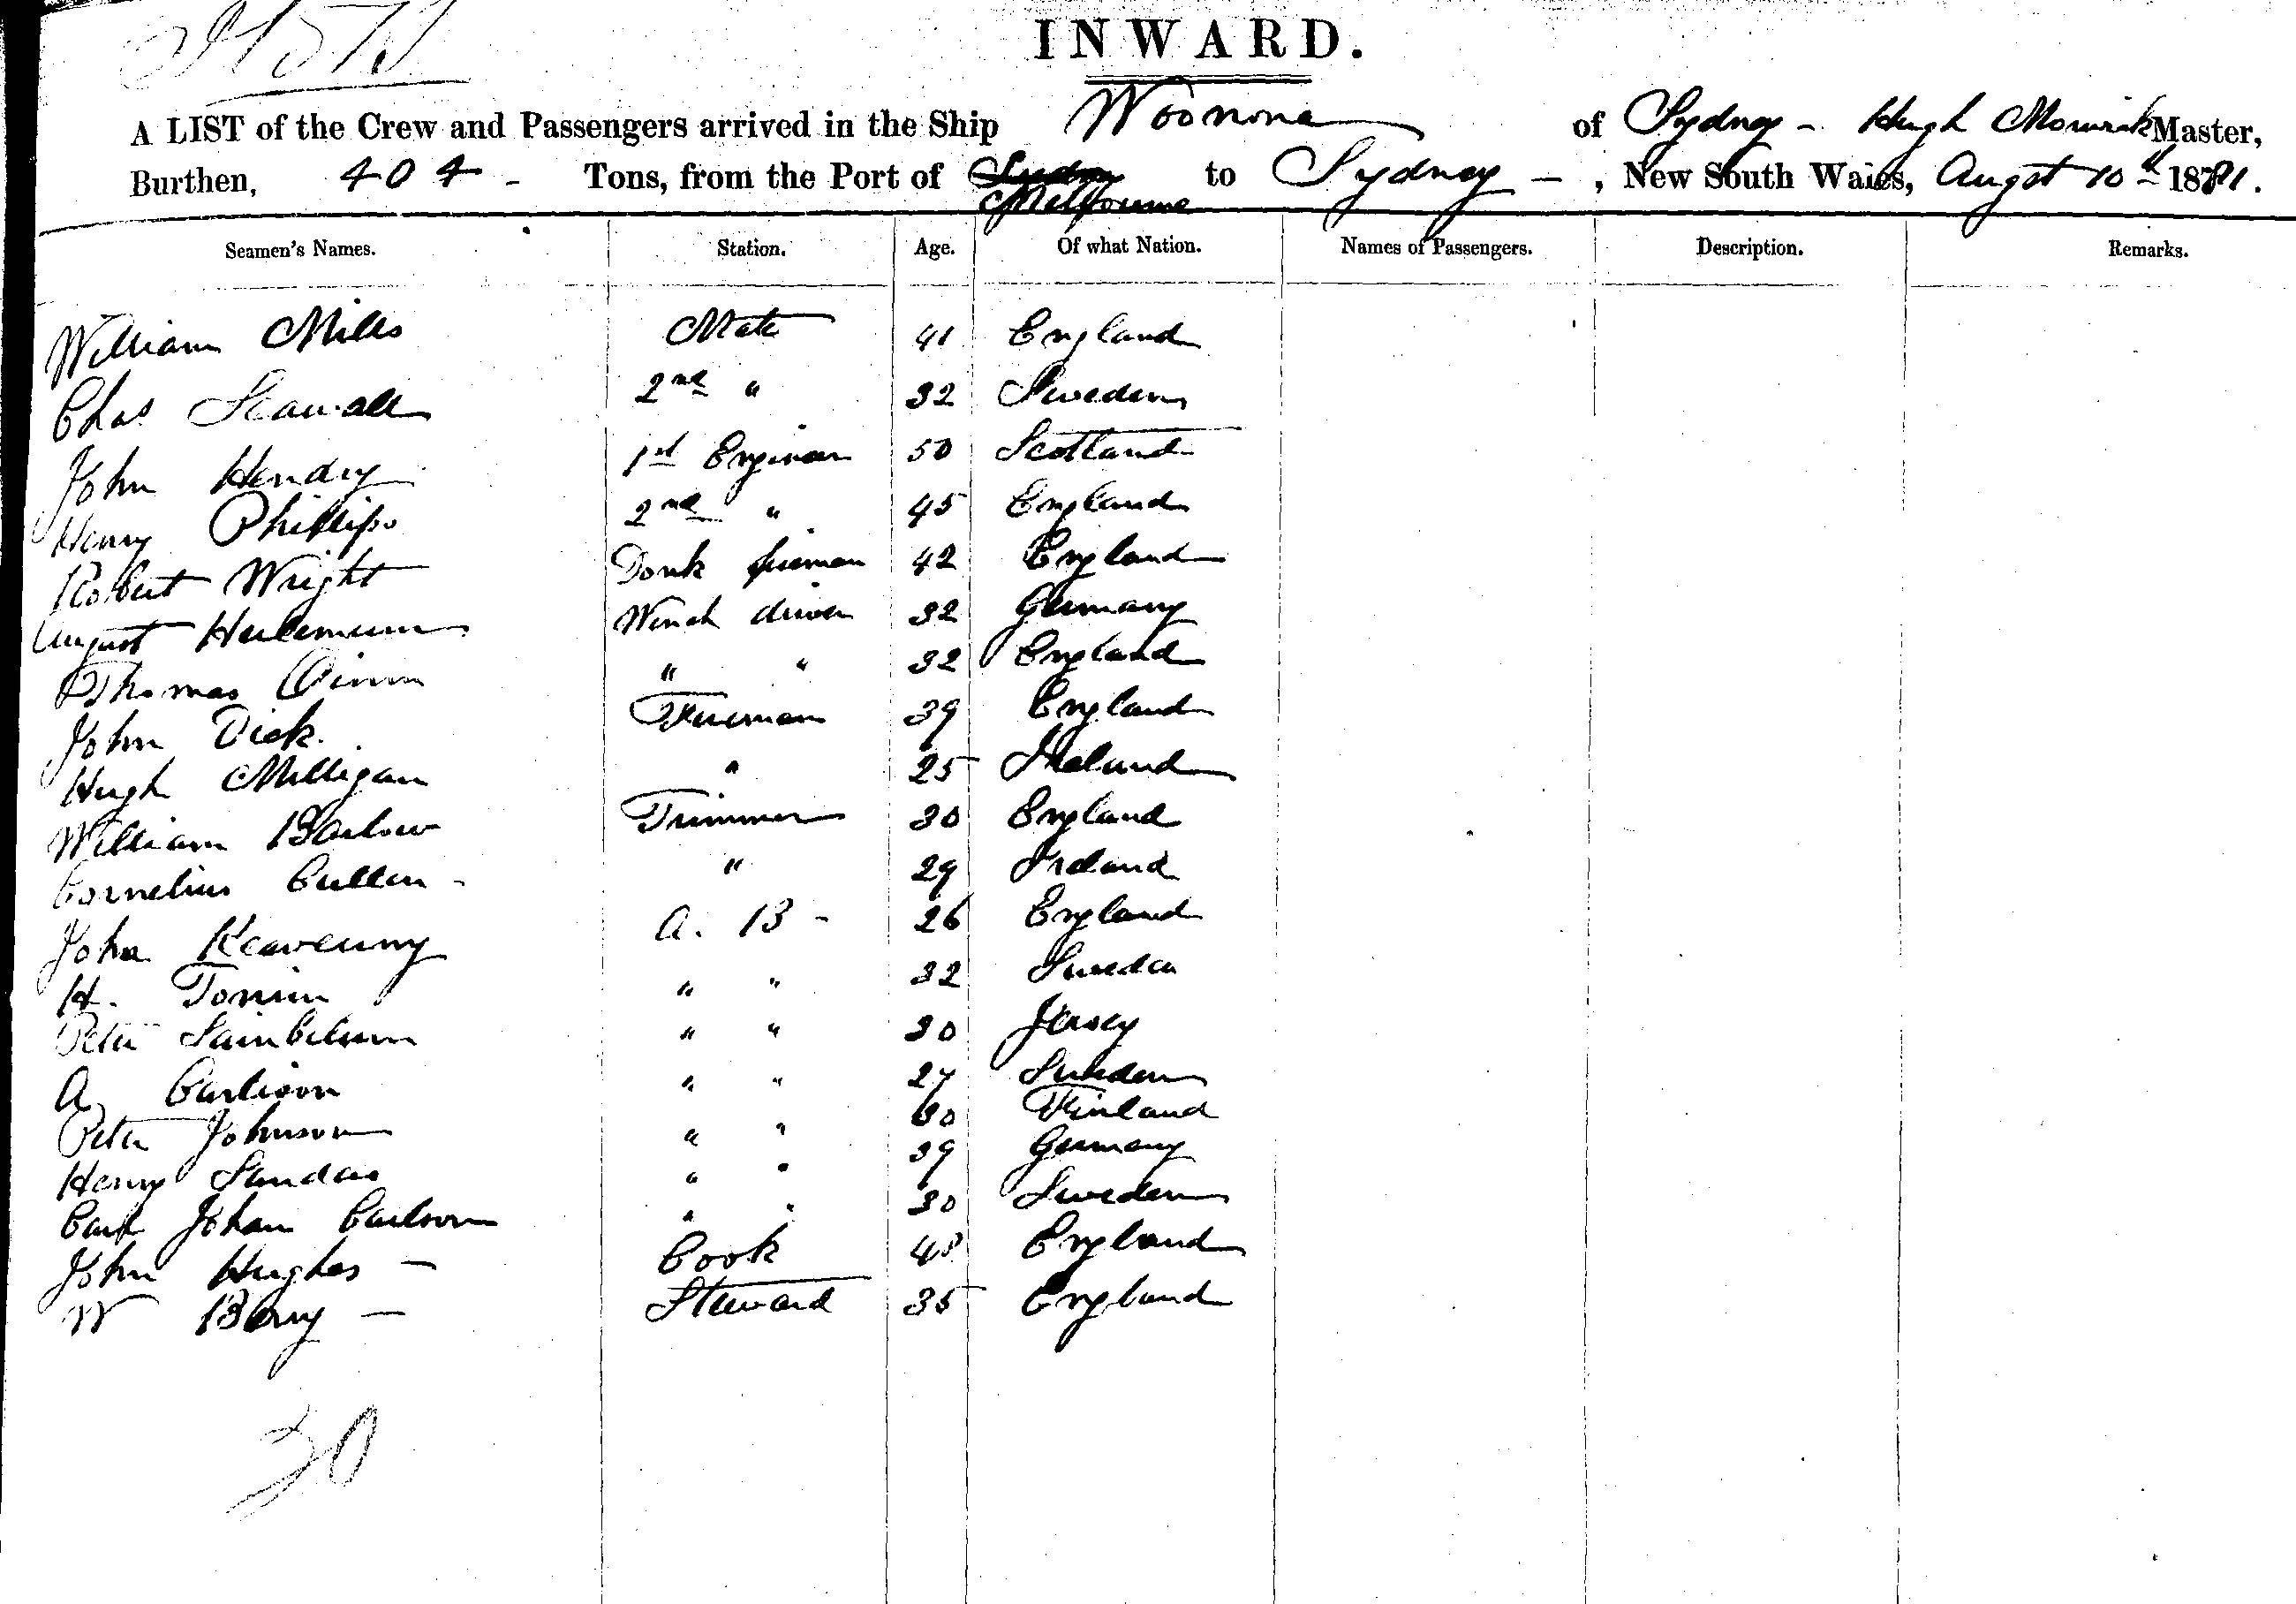 INWARD.
A LIST of the Crew and Passengers arrived in the Ship Woonona of Sydney - Hugh Master,
Burthen, 404 - Tons, from the Port of Sydney Melbourne to Sydney - , New South Wales, Augst 10th 1881.
Seamen's Names. Station. Age. Of what Nation. Names of Passengers. Description. Remarks.
William Mills Mate 41 England
Chas 2nd " 32 Sweden
John Hendry 1st Engineer 50 Scotland
Henry Phillips 2nd " 45 England
Robert Wright Donk fireman 42 England
August Winch driver 32 Germany
Thomas " " 32 England
John Dick. Fireman 39 England
Hugh Milligan " 25 Ireland
William Barlow Trimmer 30 England
Cornelius Cullen - " 29 Ireland
John Keavenny A. B - 26 England
H. " " 32 Sweden
Peter " " 30 Jersey
A Carlison " " 27 Sweden
Peter Johnson " " 30 Finland
Henry Sanders " " 39 Germany
Carl Johan Carlson " " 30 Sweden
John Hughes - Cook 48 England
W Berry - Steward 35 England
20